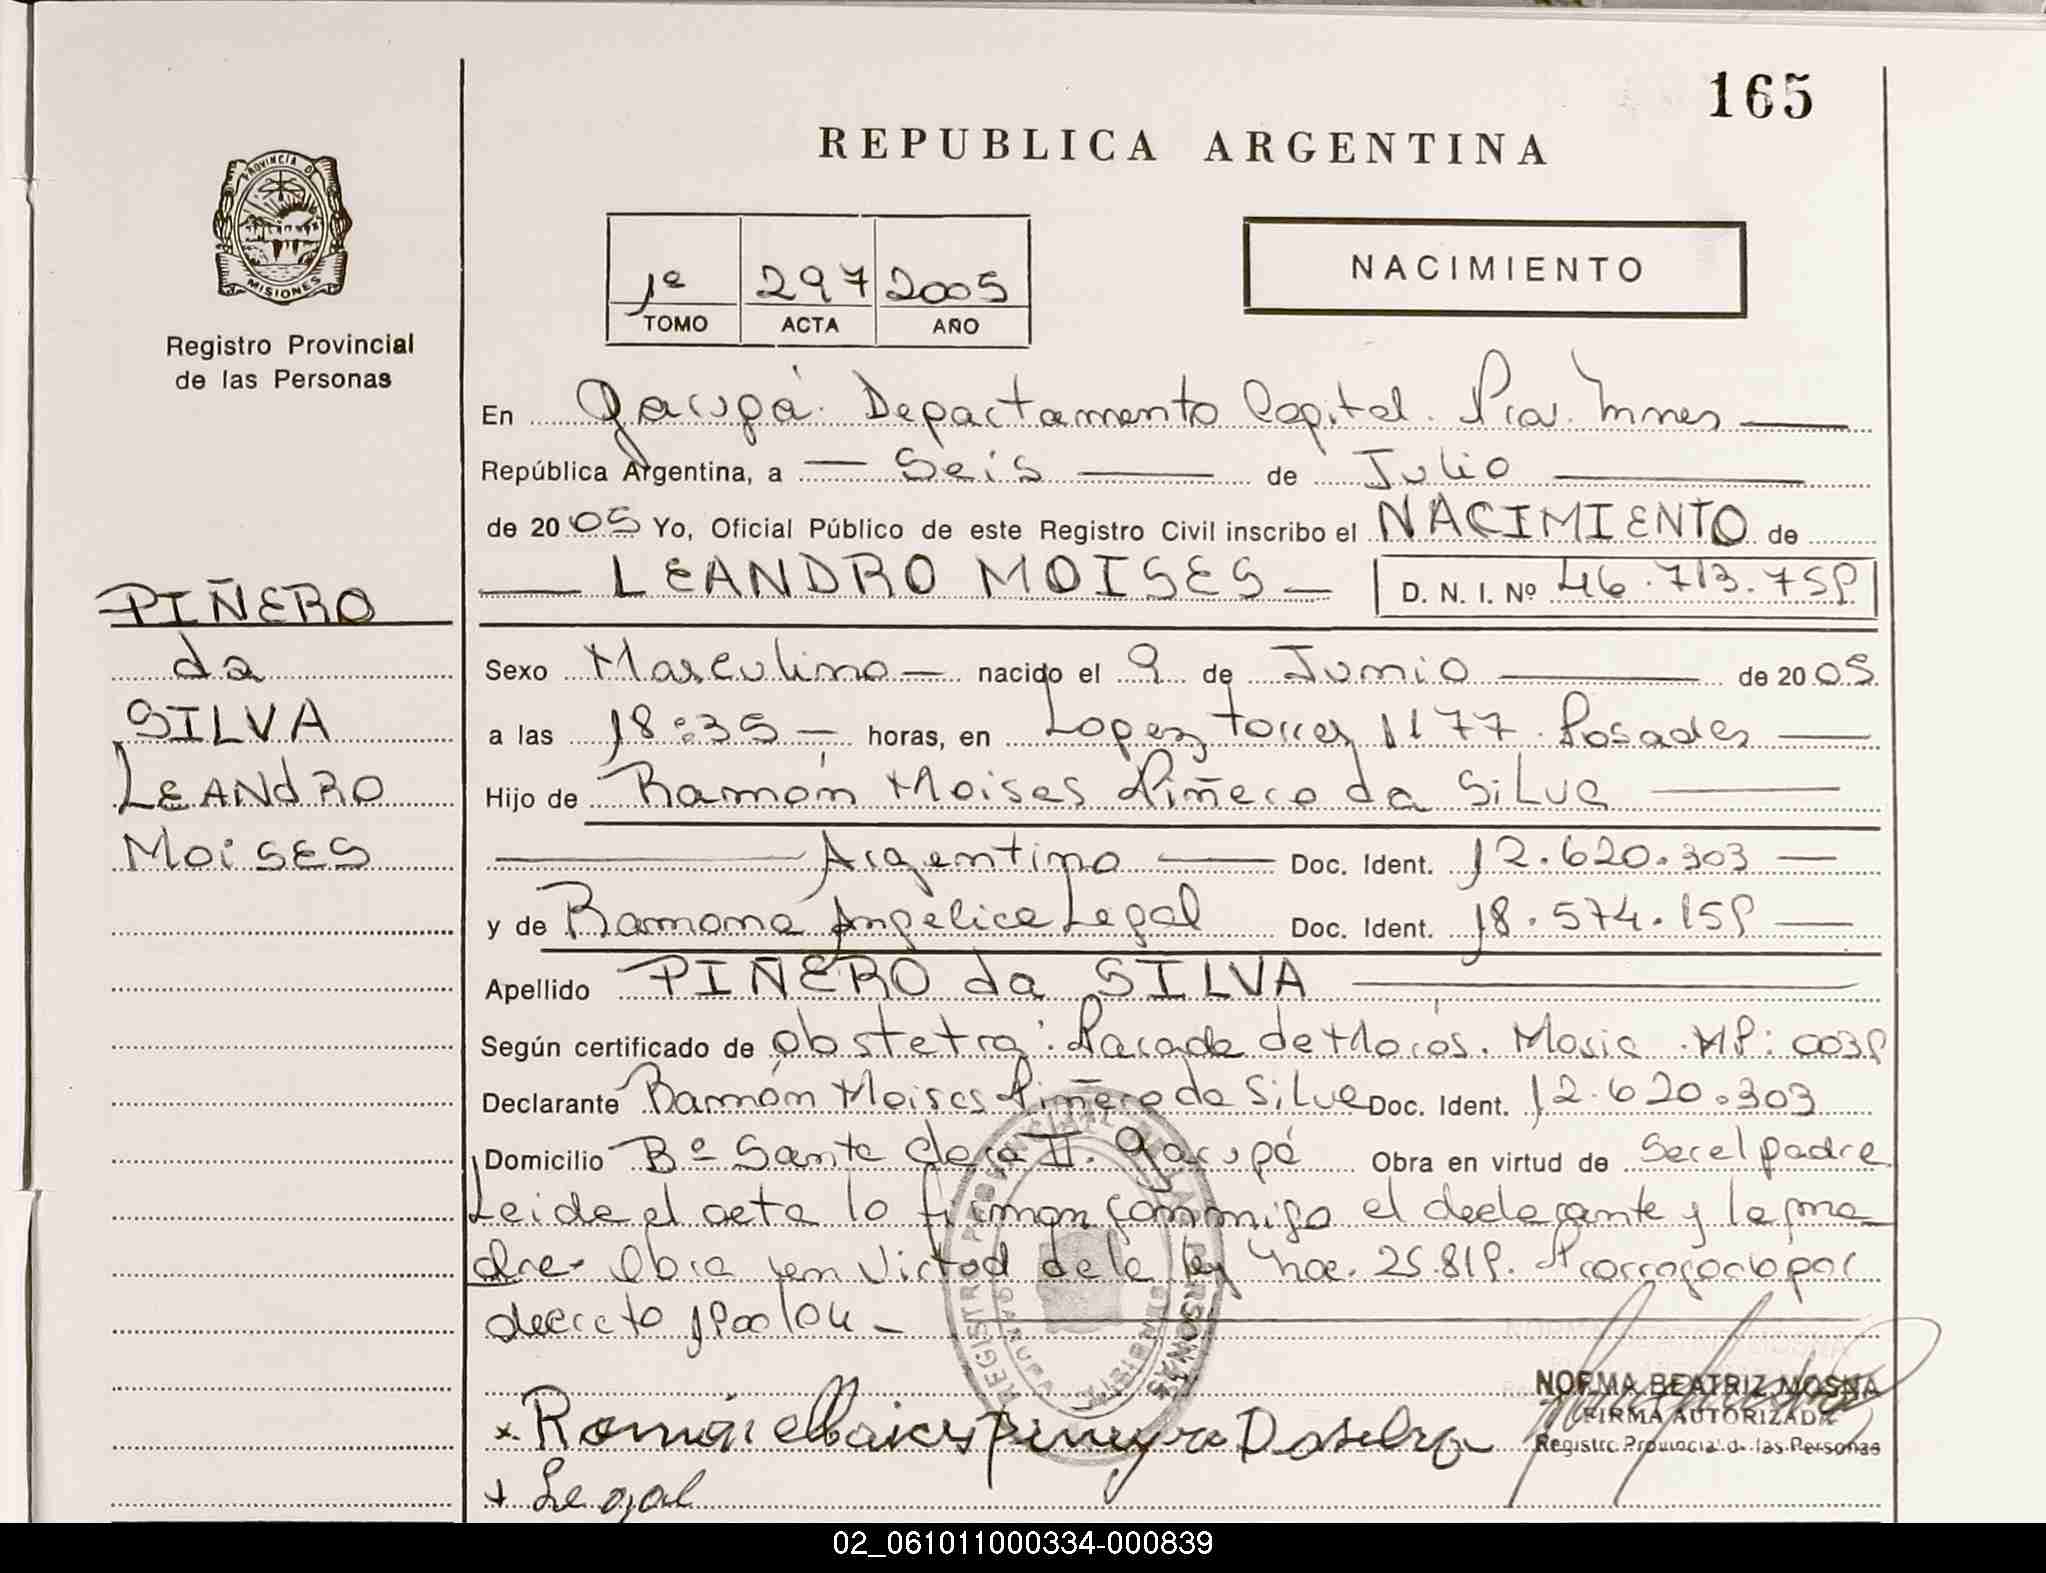 165
REPUBLICA ARGENTINA
PROVINCIA DE
MISIONES
Registro Provincial
de las Personas
1º 297 2005
TOMO ACTA AÑO
NACIMIENTO
En Garupá. Departamento Capital. Prov. Mnes
República Argentina, a Seis de Julio
de 2005 Yo, Oficial Público de este Registro Civil inscribo el NACIMIENTO de
LEANDRO MOISES D. N. I. Nº 46.713.759
PIÑERO
da
SILVA
LEANDRO
MOISES
Sexo Masculino nacido el 9 de Junio de 2005
a las 18:35 horas, en Lopez Torres 1177. Posadas
Hijo de Ramón Moises Piñero da Silva
Argentino Doc. Ident. 12.620.303
y de Ramona Angelica Legal Doc. Ident. 18.574.159
Apellido PIÑERO da SILVA
Según certificado de obstetra: Maria MP: 0039
Declarante Ramón Moises Piñero da Silva Doc. Ident. 12.620.303
Domicilio Bº Santa Clara II. Garupá Obra en virtud de Ser el padre
Leida el acta lo firman conmigo el declarante y la ma
dre. Obra en virtud de la ley nac. 25.819. Prorrogado por
decreto 1900/04
REGISTRO PROVINCIAL DE LAS PERSONAS
NORMA BEATRIZ MOSNA
FIRMA AUTORIZADA
Registro Provincial de las Personas
Legal
02_061011000334-000839